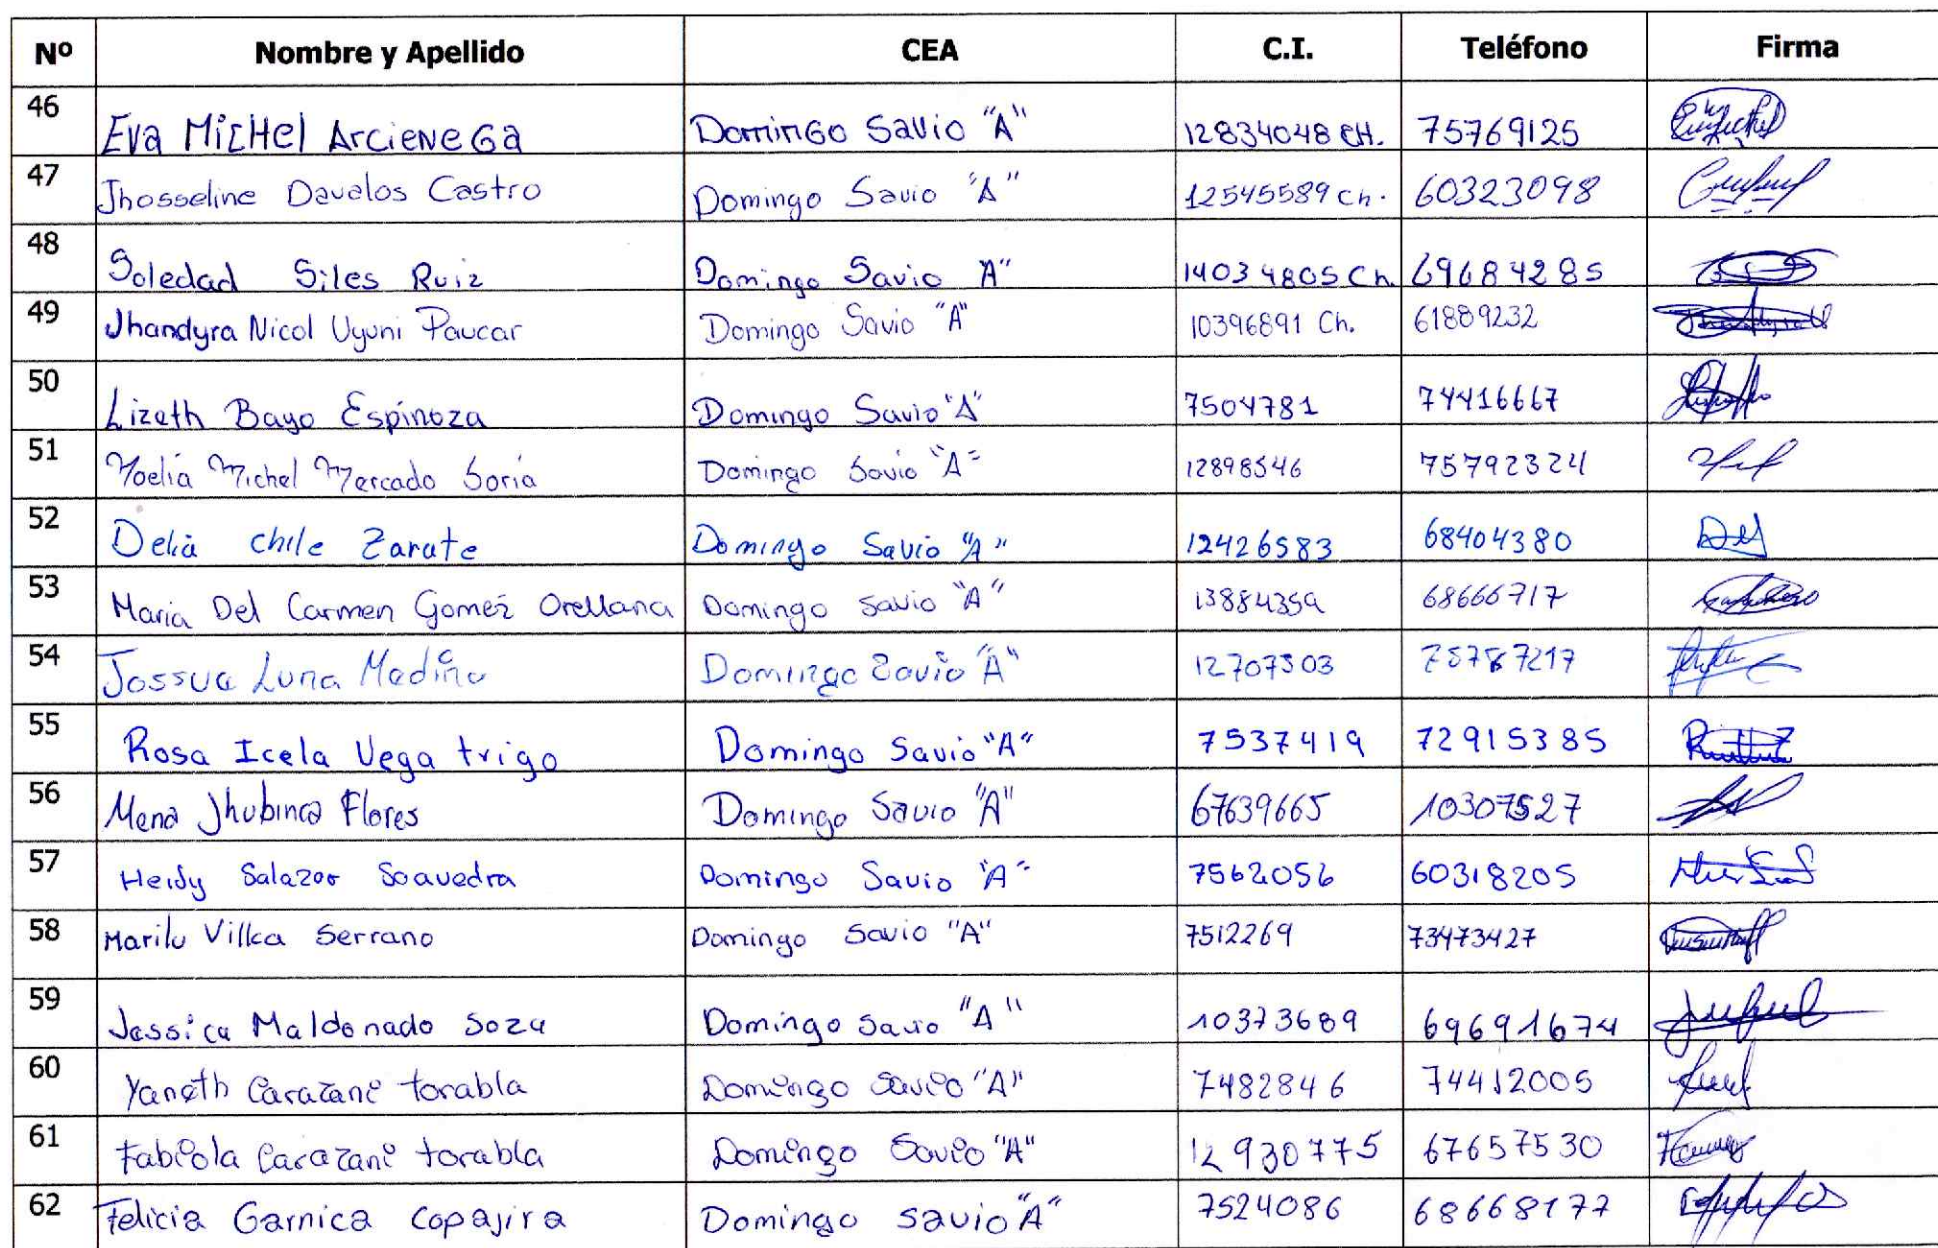 Nº Nombre y Apellido CEA C.I. Teléfono Firma
46 Eva Michel Arcienega Domingo Savio "A" 12834048 CH. 75769125
47 Jhosseline Davalos Castro Domingo Savio "A" 12545589 Ch. 60323098
48 Soledad Siles Ruiz Domingo Savio "A" 14034805 Ch. 69684285
49 Jhandyra Nicol Uyuni Paucar Domingo Savio "A" 10396891 Ch. 61889232
50 Lizeth Bayo Espinoza Domingo Savio "A" 7504781 74416667
51 Noelia Michel Mercado Soria Domingo Savio "A" 12898546 75792324
52 Delia chile Zarate Domingo Savio "A" 12426583 68404380
53 Maria Del Carmen Gomez Orellana Domingo Savio "A" 13884359 68666717
54 Jossua Luna Medina Domingo Savio "A" 12707303 75787217
55 Rosa Icela Vega trigo Domingo Savio "A" 7537419 72915385
56 Mena Jhubinca Flores Domingo Savio "A" 67639665 10307527
57 Heidy Salazar Saavedra Domingo Savio "A" 7562056 60318205
58 Marilu Villca Serrano Domingo Savio "A" 7512269 73473427
59 Jessica Maldonado Soza Domingo Savio "A" 10373689 69691674
60 Yaneth Carazani torabla Domingo Savio "A" 7482846 74412005
61 Fabiola Carazani torabla Domingo Savio "A" 12930775 67657530
62 Felicia Garnica Copajira Domingo Savio "A" 7524086 68668177